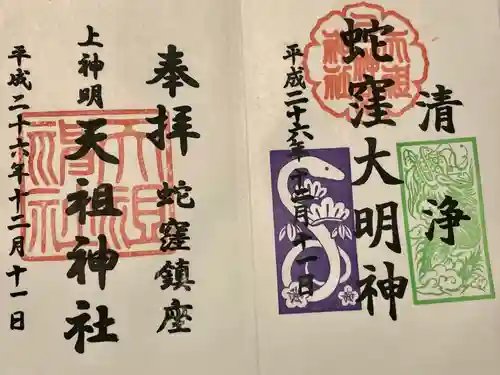 清浄
蛇窪大明神
平成二十六年十二月十一日
奉拝 蛇窪鎮座
上神明 天祖神社
平成二十六年十二月十一日
天祖神社